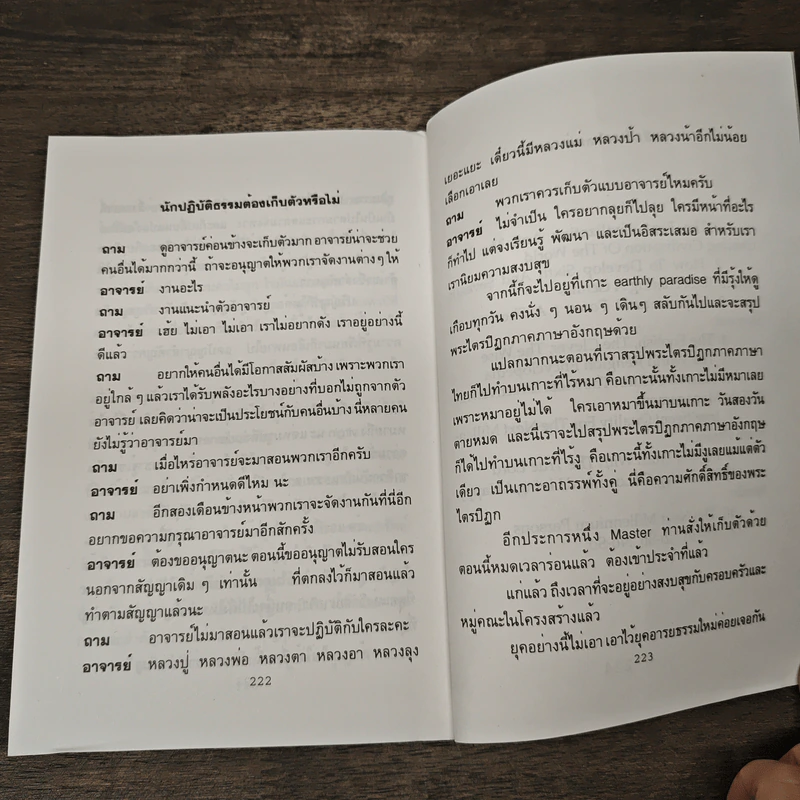 นักปฏิบัติธรรมต้องเก็บตัวหรือไม่
ถาม ดูอาจารย์ค่อนข้างจะเก็บตัวมาก อาจารย์น่าจะช่วย
คนอื่นได้มากกว่านี้ ถ้าจะอนุญาตให้พวกเราจัดงานต่างๆ ให้
อาจารย์ งานอะไร
ถาม งานแนะนำตัวอาจารย์
อาจารย์ เฮ้ย ไม่เอา ไม่เอา เราไม่อยากดัง เราอยู่อย่างนี้
ดีแล้ว
ถาม อยากให้คนอื่นได้มีโอกาสสัมผัสบ้าง เพราะพวกเรา
อยู่ใกล้ ๆ แล้วเราได้รับพลังอะไรบางอย่างที่บอกไม่ถูกจากตัว
อาจารย์ เลยคิดว่าน่าจะเป็นประโยชน์กับคนอื่นบ้าง นี่หลายคน
ยังไม่รู้ว่าอาจารย์มา
ถาม เมื่อไหร่อาจารย์จะมาสอนพวกเราอีกครับ
อาจารย์ อย่าเพิ่งกำหนดดีไหม นะ
ถาม อีกสองเดือนข้างหน้าพวกเราจะจัดงานกันที่นี่อีก
อยากขอความกรุณาอาจารย์มาอีกสักครั้ง
อาจารย์ ต้องขออนุญาตนะ ตอนนี้ขออนุญาตไม่รับสอนใคร
นอกจากสัญญาเดิม ๆ เท่านั้น ที่ตกลงไว้ก็มาสอนแล้ว
ทำตามสัญญาแล้วนะ
ถาม อาจารย์ไม่มาสอนแล้วเราจะปฏิบัติกับใครละคะ
อาจารย์ หลวงปู่ หลวงพ่อ หลวงตา หลวงอา หลวงลุง
222
เยอะแยะ เดี๋ยวนี้มีหลวงแม่ หลวงป้า หลวงน้าอีกไม่น้อย
เลือกเอาเลย
ถาม พวกเราควรเก็บตัวแบบอาจารย์ไหมครับ
อาจารย์ ไม่จำเป็น ใครอยากลุยก็ไปลุย ใครมีหน้าที่อะไร
ก็ทำไป แต่จงเรียนรู้ พัฒนา และเป็นอิสระเสมอ สำหรับเรา
เรานิยมความสงบสุข
จากนี้ก็จะไปอยู่ที่เกาะ earthly paradise ที่มีรุ้งให้ดู
เกือบทุกวัน คงนั่ง ๆ นอน ๆ เดินๆ สลับกันไปและจะสรุป
พระไตรปิฎกภาคภาษาอังกฤษด้วย
แปลกมากนะตอนที่เราสรุปพระไตรปิฎกภาคภาษา
ไทยก็ไปทำบนเกาะที่ไร้หมา คือเกาะนั้นทั้งเกาะไม่มีหมาเลย
เพราะหมาอยู่ไม่ได้ ใครเอาหมาขึ้นมาบนเกาะ วันสองวัน
ตายหมด และนี่เราจะไปสรุปพระไตรปิฎกภาคภาษาอังกฤษ
ก็ได้ไปทำบนเกาะที่ไร้งู คือเกาะนี้ทั้งเกาะไม่มีงูเลยแม้แต่ตัว
เดียว เป็นเกาะอาถรรพ์ทั้งคู่ นี่คือความศักดิ์สิทธิ์ของพระ
ไตรปิฎก
อีกประการหนึ่ง Master ท่านสั่งให้เก็บตัวด้วย
ตอนนี้หมดเวลาร่อนแล้ว ต้องเข้าประจำที่แล้ว
แก่แล้ว ถึงเวลาที่จะอยู่อย่างสงบสุขกับครอบครัวและ
หมู่คณะในโครงสร้างแล้ว
ยุคอย่างนี้ไม่เอา เอาไว้ยุคอารยธรรมใหม่ค่อยเจอกัน
223